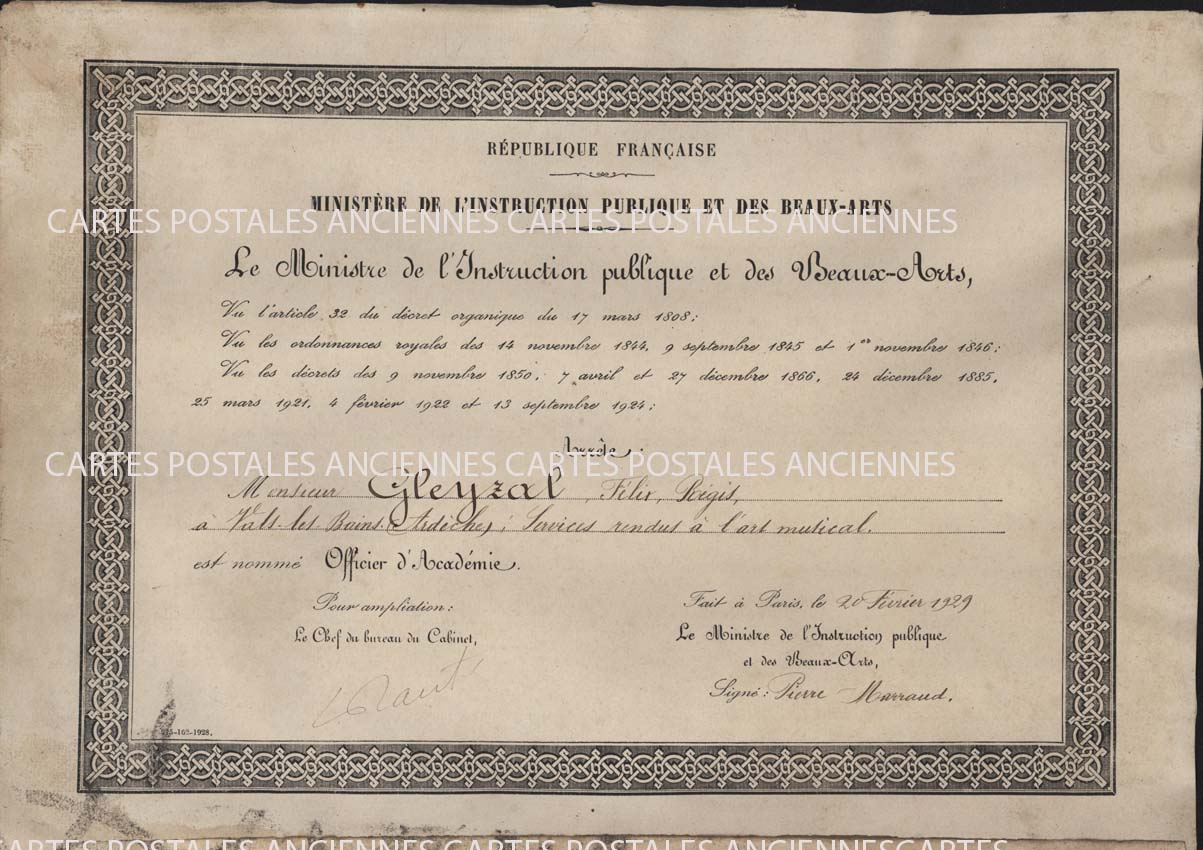 RÉPUBLIQUE FRANÇAISE
MINISTÈRE DE L'INSTRUCTION PUBLIQUE ET DES BEAUX-ARTS
CARTES POSTALES ANCIENNES CARTES POSTALES ANCIENNES
Le Ministre de l'Instruction publique et des Beaux-Arts,
Vu l'article 32 du décret organique du 17 mars 1808;
Vu les ordonnances royales des 14 novembre 1844, 9 septembre 1845 et 1er novembre 1846;
Vu les décrets des 9 novembre 1850, 7 avril et 27 décembre 1866, 24 décembre 1885,
25 mars 1921, 4 février 1922 et 13 septembre 1924;
Arrête:
CARTES POSTALES ANCIENNES CARTES POSTALES ANCIENNES
Monsieur Gleyzal, Félix, Régis,
à Vals-les-Bains (Ardèche); Services rendus à l'art musical.
est nommé Officier d'Académie.
Pour ampliation:
Le Chef du bureau du Cabinet,
Fait à Paris, le 20 Février 1929
Le Ministre de l'Instruction publique
et des Beaux-Arts,
Signé: Pierre Marraud.
-162-1928.
CARTES POSTALES ANCIENNES CARTES POSTALES ANCIENNESCARTES